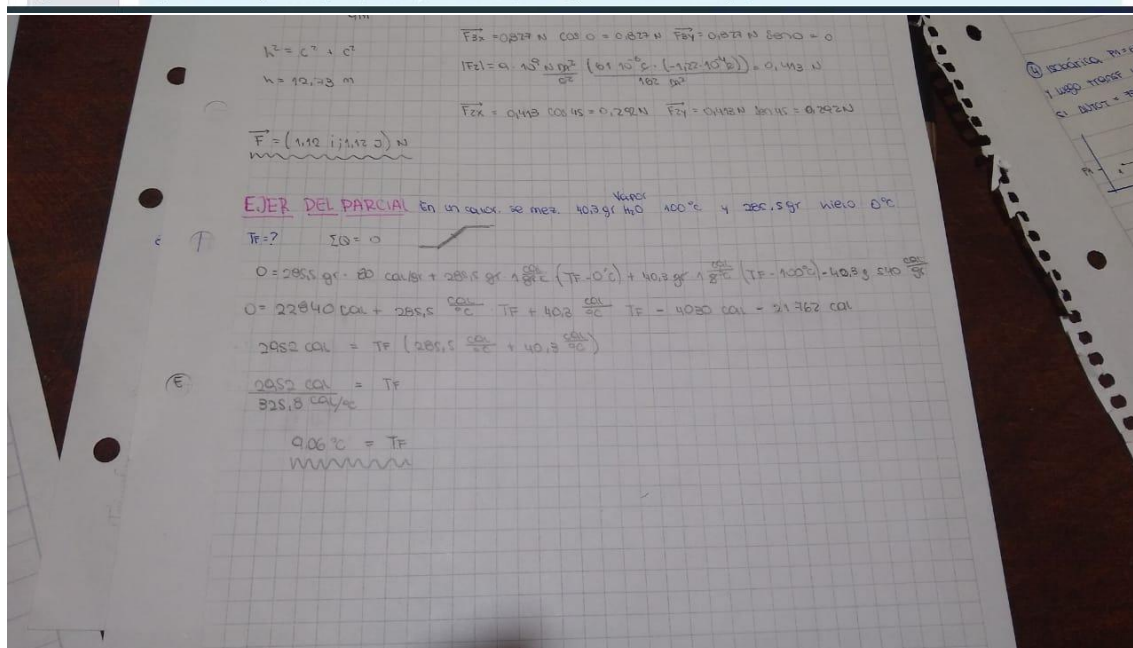 h² = c² + c²
h = 12,73 m
F3x = 0,827 N cos 0 = 0,827 N F3y = 0,827 N sen 0 = 0
|F2| = 9 · 10⁹ N m² / c²
162 m²
= 0,413 N
F2x = 0,413 cos 45 = 0,292N F2y = 0,413N sen 45 = 0,292N
F = (1,12 i ; 1,12 J) N
EJER DEL PARCIAL En un calor. se mez. 40,3 gr vapor H₂O 100°C y 285,5 gr hielo 0°C
TF=? ΣQ = 0
0 = 285,5 gr · 80 cal/gr + 285,5 gr 1 cal/gr°C (TF - 0°C) + 40,3 gr 1 cal/gr°C (TF - 100°C) - 40,3 g 540 cal/gr
0 = 22840 cal + 285,5 cal/°C TF + 40,3 cal/°C TF - 4030 cal - 21762 cal
2952 cal = TF (285,5 cal/°C + 40,3 cal/°C)
E
2952 cal / 325,8 cal/°C = TF
9,06 °C = TF
4 isobárica